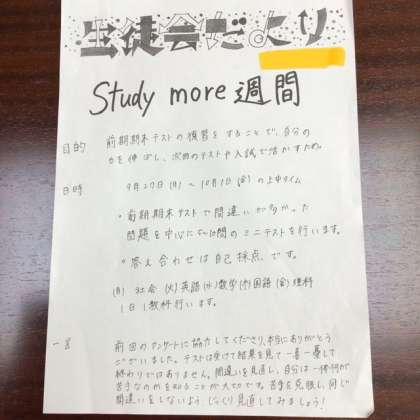 生徒会だより
Study more 週間
目的 前期期末テストの復習をすることで、自分の
力を伸ばし、次回のテストや入試で活かすため。
日時 9月27日(月) 〜 10月1日(金) の上中タイム
・前期期末テストで間違いが多かった
問題を中心に5〜10問のミニテストを行います。
・答え合わせは自己採点です。
(月) 社会 (火)英語 (水)数学 (木)国語 (金)理科
1日1教科行います。
一言 前回のアンケートに協力してくださり、本当にありがとう
ございました。テストは受けて結果を見て一喜一憂して
終わりではありません。間違いを見直し、自分は一体何が
苦手なのかを知ることが大切です。苦手を克服し、同じ
間違いをしないよう、じっくり見直してみましょう!